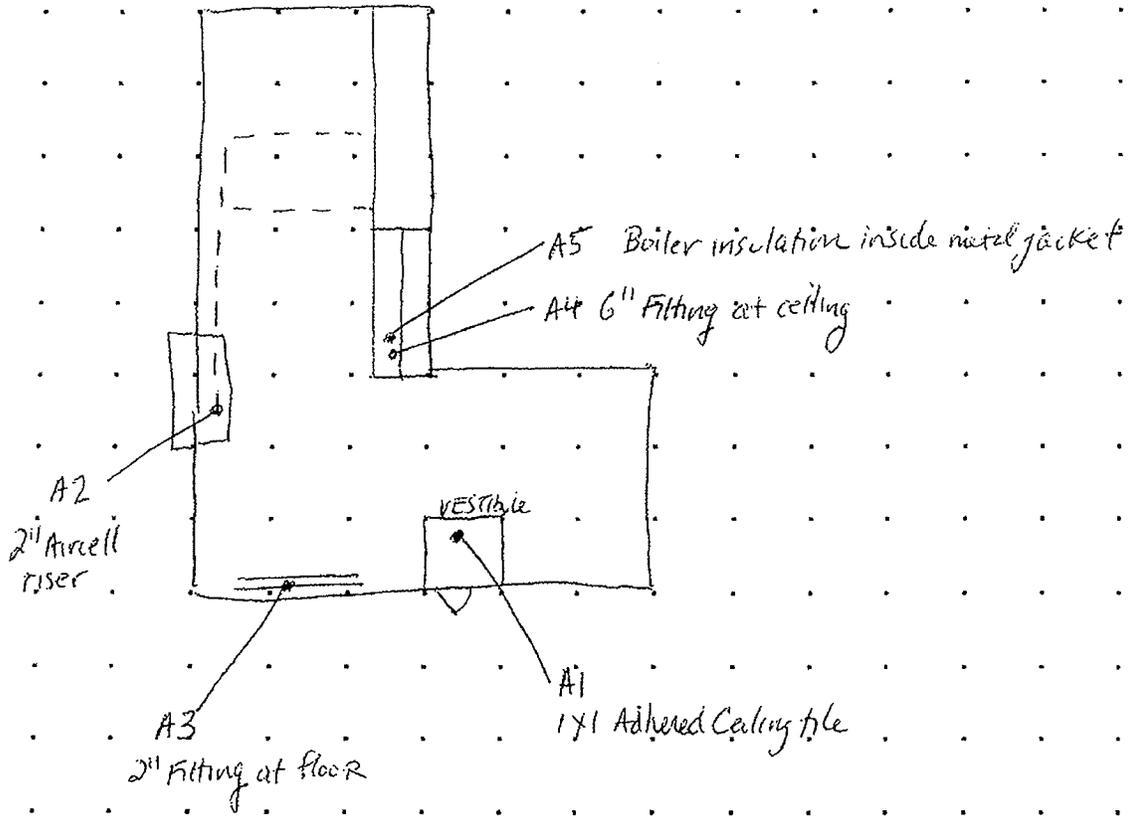 A5 Boiler insulation inside metal jacket
A4 6" Fitting at ceiling
A2
2" Aircell
riser
VESTIble
A1
1x1 Adhered Ceiling tile
A3
2" Fitting at floor